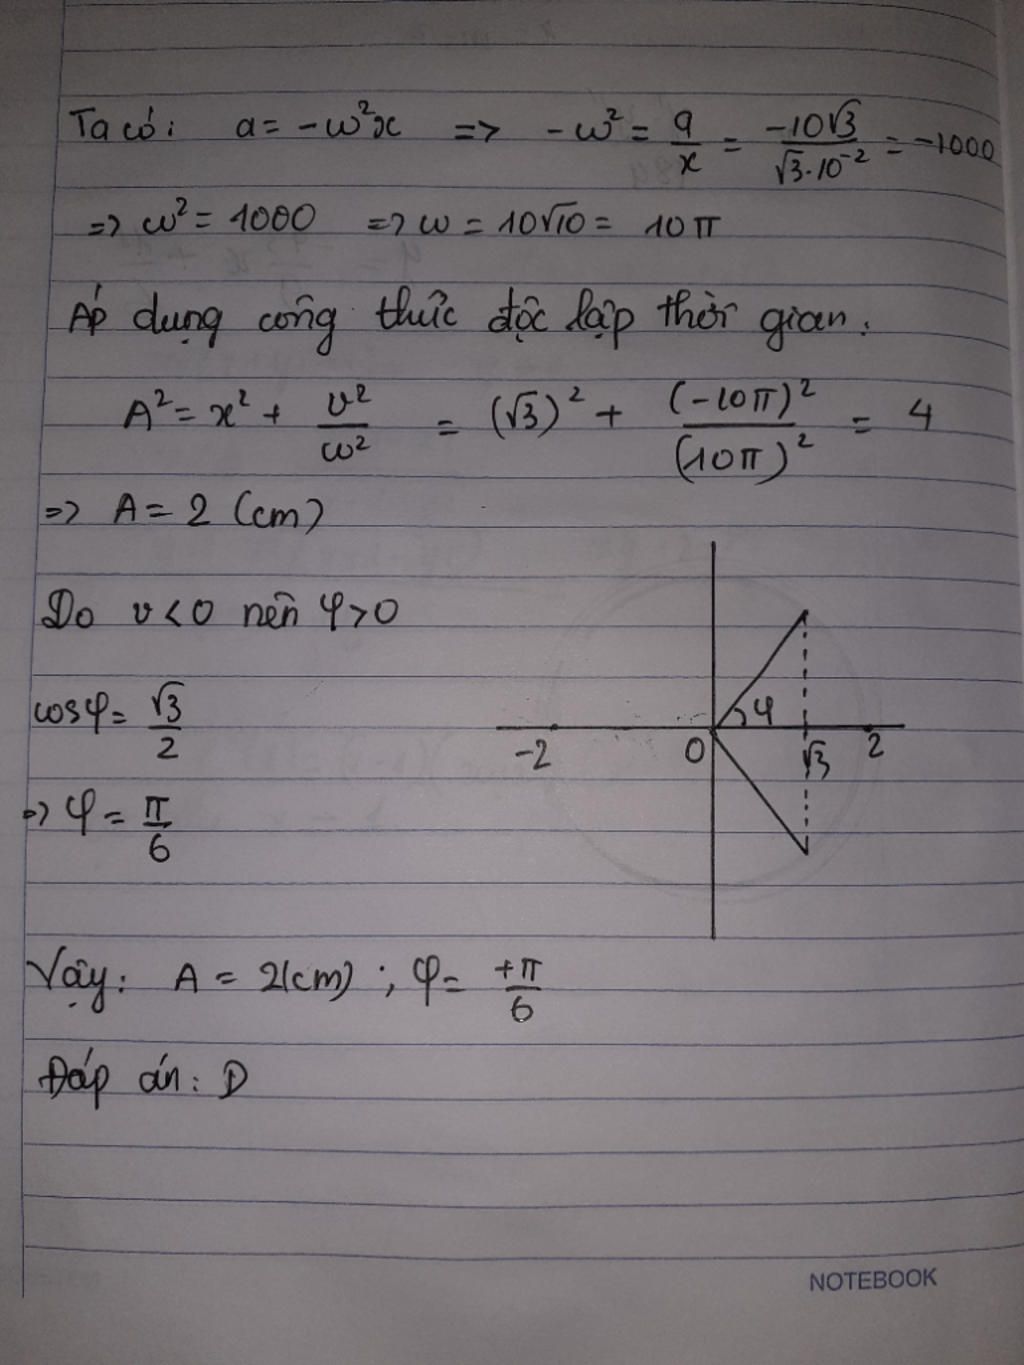 Ta có: a = -ω²x => -ω² = a/x = -10√3/√3.10⁻² = -1000
=> ω² = 1000 => ω = 10√10 = 10π
Áp dụng công thức độc lập thời gian:
A² = x² + v²/ω² = (√3)² + (-10π)²/(10π)² = 4
=> A = 2 (cm)
Do v < 0 nên φ > 0
cosφ = √3/2
=> φ = π/6
φ
-2 0 √3 2
Vậy: A = 2(cm) ; φ = +π/6
Đáp án: D
NOTEBOOK